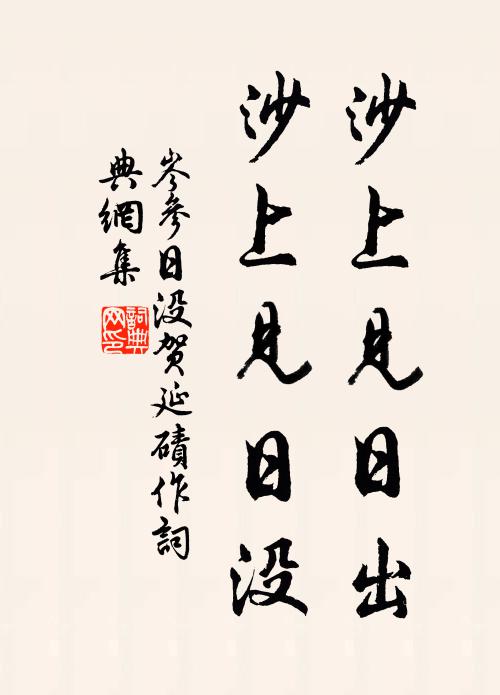 沙上見日出
沙上見日没
岑參日没贺延磧作詞
典網集
詞典
网印